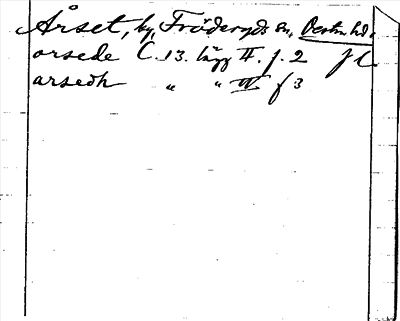 Årset, by, Fröderyds sn, Västra hd.
arsede C. 13. lägg II. f. 2
arsedh " " II f 3